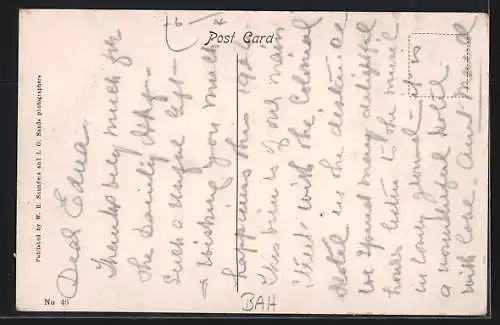 Post Card
Published by W. H. Saunders and I. O. Sands photographers
No 46
BAH
Dear Edna.
Thanks very much for
the dainty
Such a useful gift -
& wishing you much
happiness this
This view is of our main
Street with the Colonial
Hotel in the distance
We spend many delightful
hours listen to the music
in long grounds - it is
a wonderful hotel.
with love. Aunt